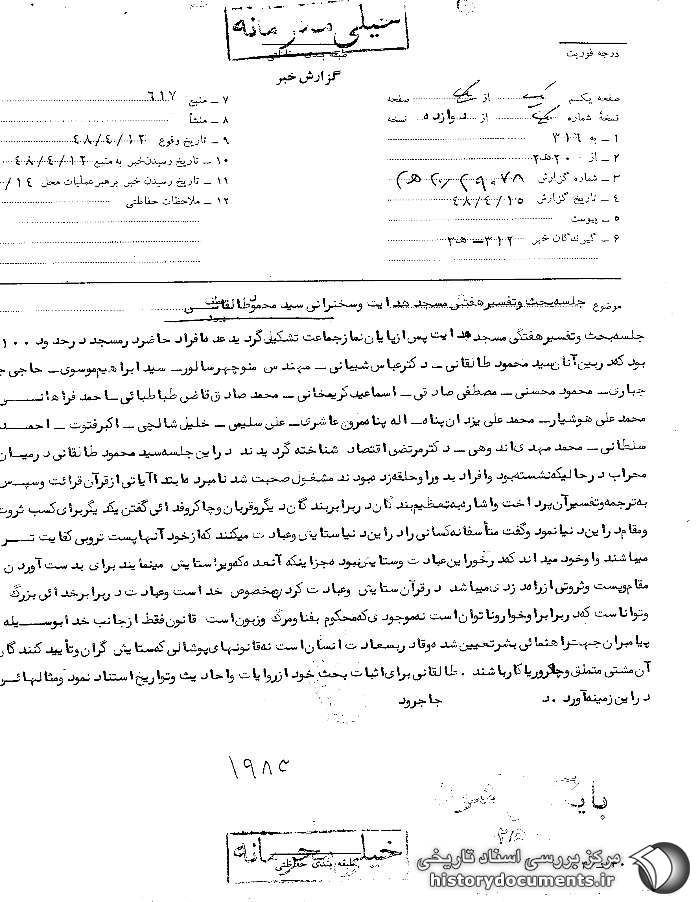 خیلی محرمانه
طبقه بندی حفاظتی
گزارش خبر
درجه فوریت
صفحه یکم یک از یک صفحه
نسخهٔ شماره یک از دوازده نسخه
۱ – به ۳۱۶
۲ – از ۲۰ ه‍ ۲
۳ – شماره گزارش
۴ – تاریخ گزارش ۴۸/۴/۱۵
۵ – پیوست
۶ – گیرندگان خبر ۳۱۲
۷ – منبع ۶۱۷
۸ – منشأ
۹ – تاریخ وقوع ۴۸/۴/۱۲
۱۰ – تاریخ رسیدن خبر به منبع ۴۸/۴/۱۲
۱۱ – تاریخ رسیدن خبر برهبر عملیات محل ۱۴/
۱۲ – ملاحظات حفاظتی
موضوع جلسه بحث وتفسیر هفتگی مسجد هدایت وسخنرانی سید محمود طالقانی
جلسه بحث وتفسیر هفتگی مسجد هدایت پس ازپایان نماز جماعت تشکیل گردید عده افراد حاضر درمسجد درحدود ۱۰۰
بود که دربین آنان سید محمود طالقانی – دکترعباس شیبانی – مهندس منوچهر سالور – سید ابراهیم موسوی – حاجی
جباری – محمود محسنی – مصطفی صادقی – اسماعیل کریمخانی – محمد صادق قاضی طباطبائی – احمد فراهانی
محمد علی هوشیار – محمد علی یزدان پناه – اله پناه – عاشری – علی سلیمی – خلیل شالچی – اکبرفتوت – احمد
سلطانی – محمد مهدی اند وهی – دکترمرتضی اقتصاد شناخته گردیدند دراین جلسه سید محمود طالقانی درمیان
محراب درحالیکه نشسته بود وافراد بدور اوحلقه زده بودند مشغول صحبت شد نامبرده ابتدا آیاتی ازقرآن قرائت وسپس
به ترجمه وتفسیر آن پرداخت واشاره به تعظیم بندگان دربرابربندگان دیگر وقربان وچاکر وفدائی گفتن یکدیگر برای کسب ثروت
ومقام دراین دنیا نمود وگفت متأسفانه کسانی را دراین دنیا ستایش وعبادت میکنند که ازخود آنها پست تر وبی کفایت تر
میباشند واخود میداند که درخور این عبادت وستایش نبوده جز اینکه آنعده که ویرا ستایش مینمایند برای بدست آوردن
مقام وپست وثروتی ازراه دزدی میباشد درقرآن ستایش وعبادت کردن مخصوص خداست وعبادت دربرابرخدائی بزرگ
وتواناست که دربرابر اوخوار وناتوان است نه موجودی که محکوم بفنا ومرگ وزبون است قانون فقط ازجانب خدا بوسیله
پیامبران جهت راهنمائی بشرتعیین شده وقادر بسعادت انسان است نه قانونهای پوشالی که ستایش گران وتأیید کنندگان
آن مشتی متملق وچاکر وریاکار باشند . طالقانی برای اثبات بحث خود ازروایات واحادیث وتواریخ استناد نمود ومثالهائی
دراین زمینه آورد . د جاجرود
خیلی محرمانه
طبقه بندی حفاظتی
مرکز بررسی اسناد تاریخی
historydocuments.ir